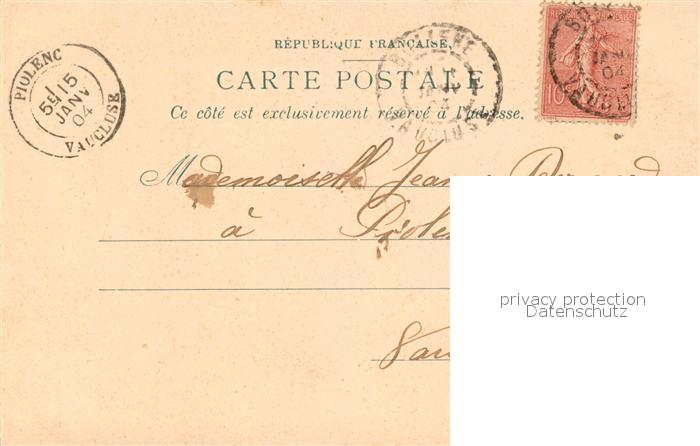 RÉPUBLIQUE FRANÇAISE.
CARTE POSTALE
Ce côté est exclusivement réservé à l'adresse.
PIOLENC
5E 15
JANV
04
VAUCLUSE
BOLLENE
VAUCLUSE
04
10
Mademoiselle Jeanne
à Piolen
Vau
privacy protection
Datenschutz